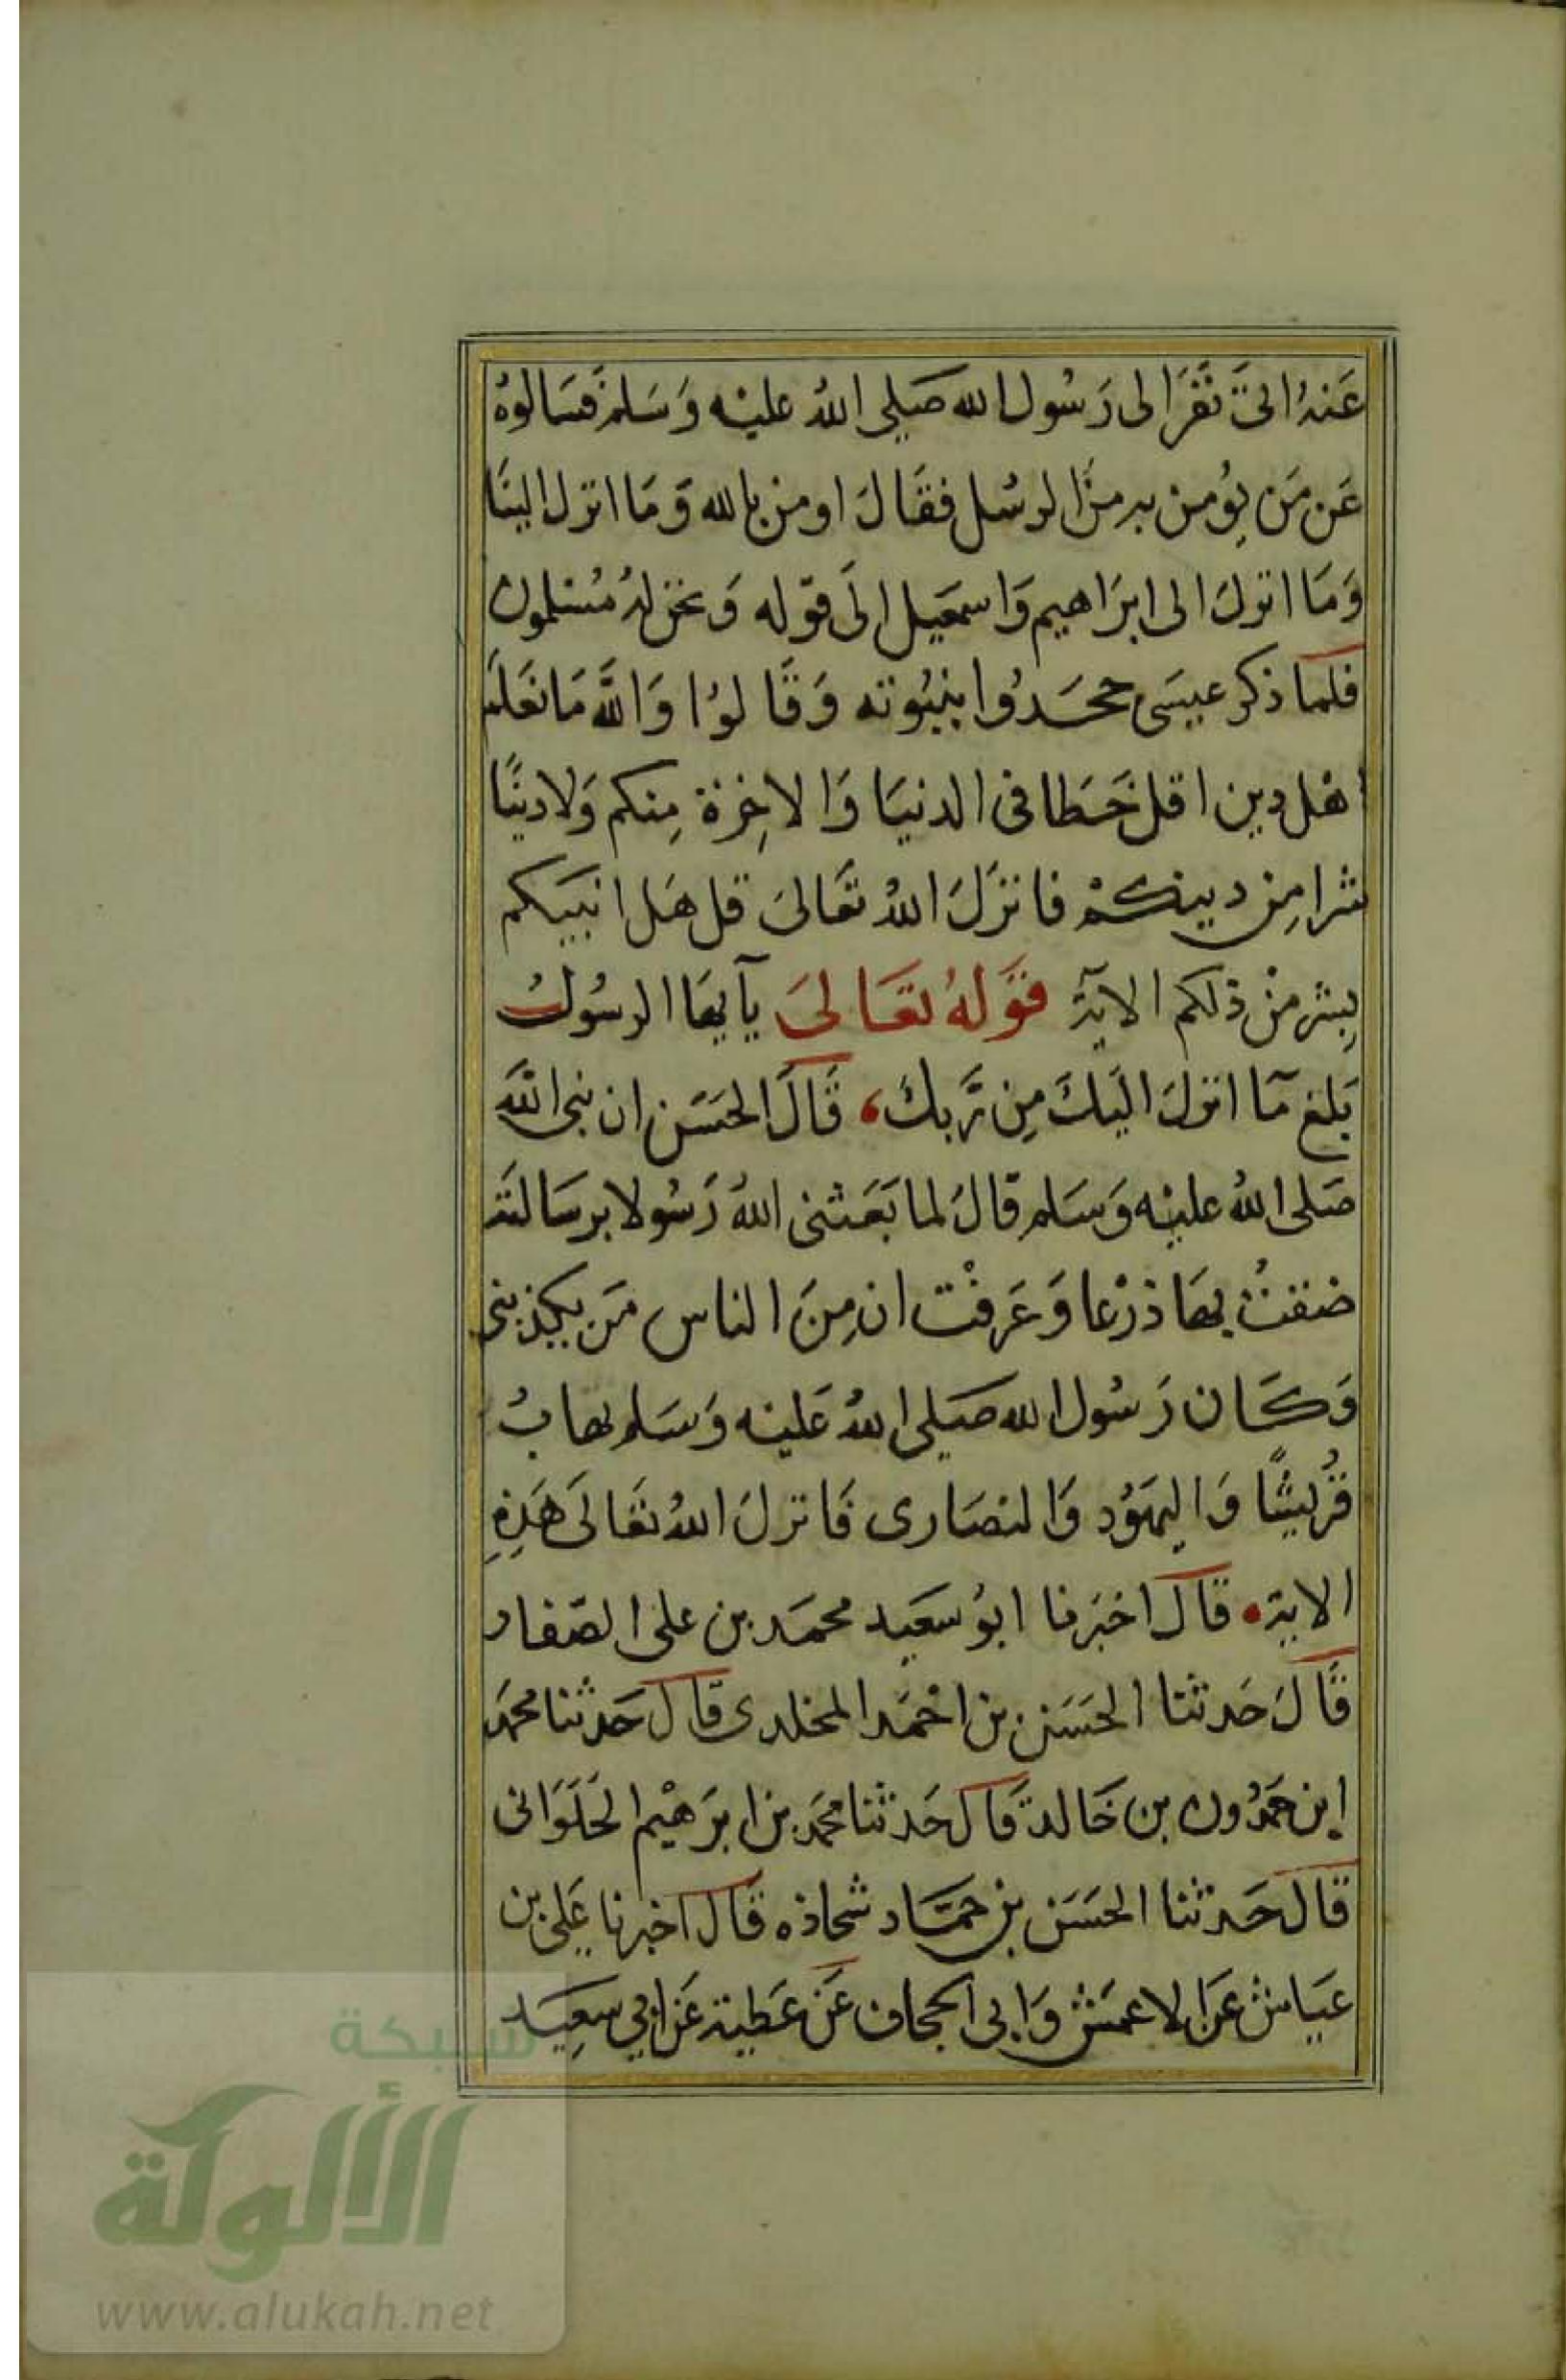 عَنهُ اتىَ نَفَرَ الى رَسُول الله صَلى اللهُ عليْه وَسَلم فَسَالوهُ
عَن مَن يؤمن به منَ الرسُل فقَالَ اومن بالله وَمَا انزل الينَا
وَمَا انزلَ الى ابرَاهيم وَاسمعيل الَى قوله وَنحن لهُ مُسْلمون
فلما ذكر عيسَى جحَدُوا بنبُوته وَقَالوُا وَاللَّه مَا نعَلم
اهْل دين اقل حَظا فى الدنيَا وَالاخِرَة مِنكم وَلا دينًا
شرا مِن دينكمْ فانزَلَ اللهُ تعَالىَ قل هَل انبيكم
بِشر منْ ذلكم الآية قوَلهُ تعَالىَ يآيهَا الرسُولُ
بَلغ مَآ انزلَ اليكَ مِن رَّبكَ، قَالَ الحَسَن ان نبى اللَّه
صَلى اللهُ عليْه وَسَلم قالَ لما بَعَثنى اللهُ رَسُولا برسَالته
ضقتُ بهَا ذرْعا وَعَرفْت ان مِنَ الناس مَن يكذبنى
وَكَان رَسُول الله صَلى اللهُ عَليْه وَسَلم يهَابُ
قُرَيشًا وَاليهَوُد وَالنصَارى فَانزلَ اللهُ تعَالىَ هَذِهِ
الاية، قالَ اخبَرنا ابوُ سَعيد محمَد بن على الصّفار
قَالَ حَدثنا الحَسَن بن احْمَد المخلدى قال حَدثنا محمَد
ابن حمَدُون بن خَالد قَال حَدثنا محمَد بن ابرَهْيم الحَلوَانى
قال حَدثنا الحَسَن بن حمَّاد سجاده قَال اخبرنا عَلى بن
عيَاش عَن الاعمَش وَابى الحجاف عَن عَطية عَن ابي سعِيَد
شبكة
الألوكة
www.alukah.net